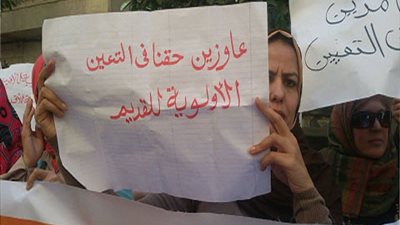 عاوزين حقنا فى التعين
الأولوية للقديم
التعيين